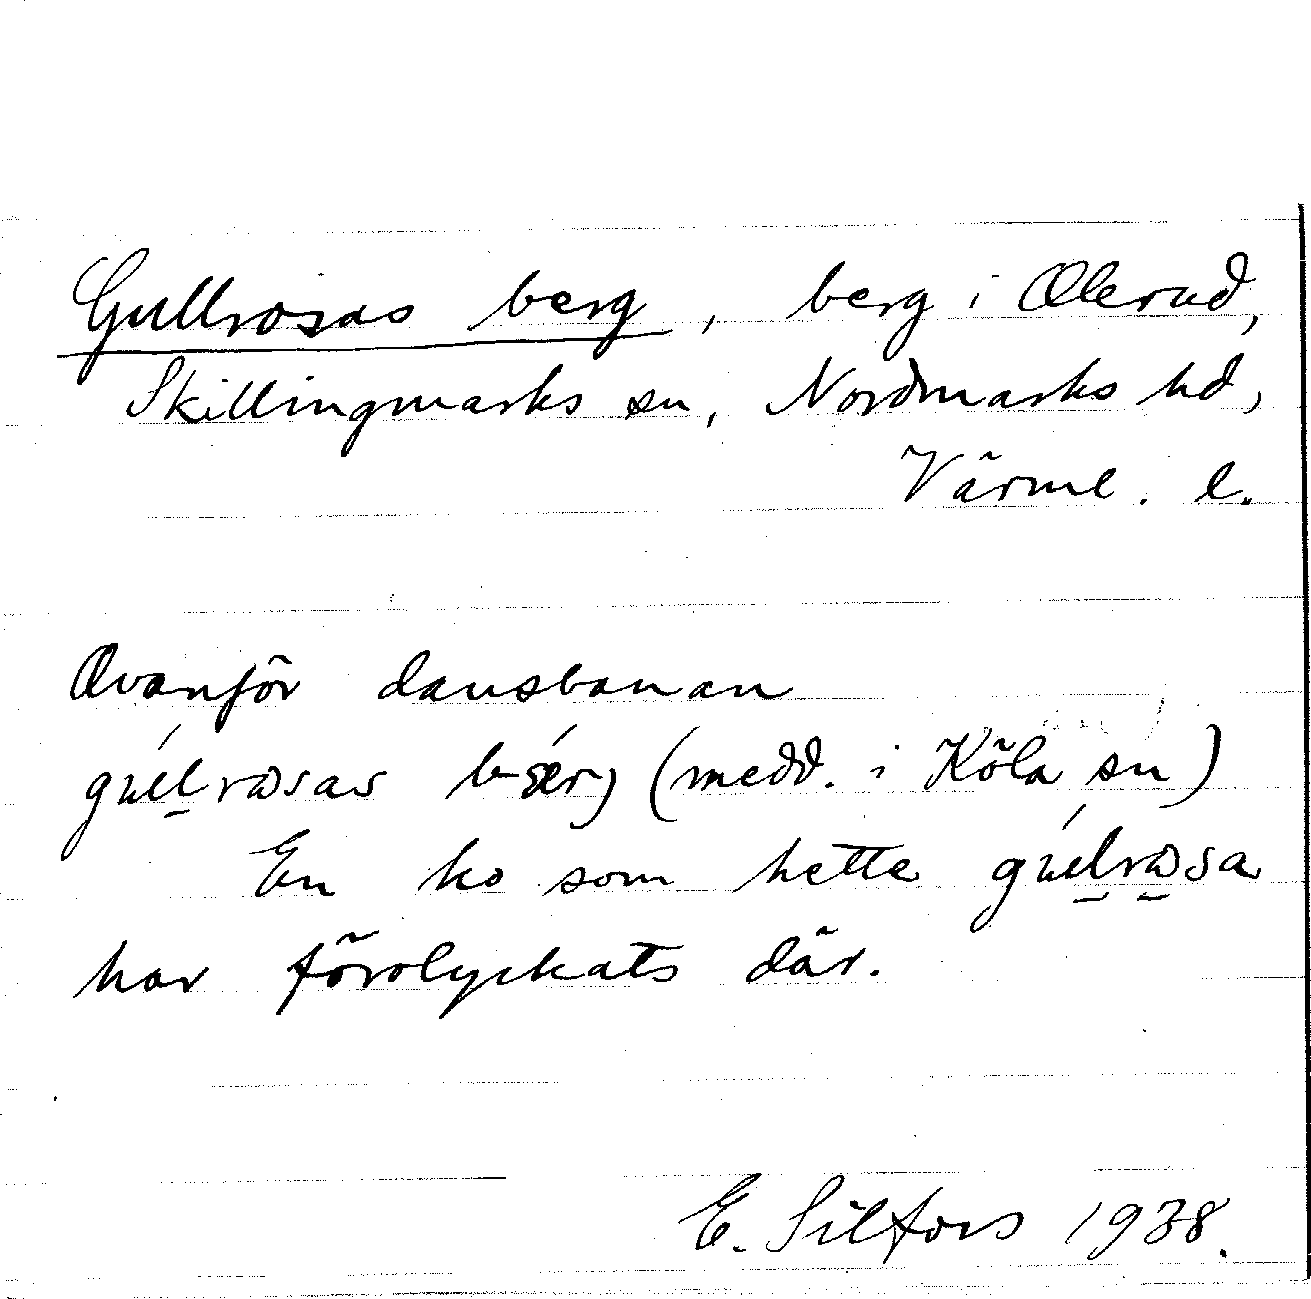 Gullrosas berg, berg i Olerud,
Skillingmarks sn, Nordmarks hd,
Värml. l.
Ovanför dansbanan
(medd. i Köla sn)
En ko som hette
har förolyckats där.
E. Silfors 1938.